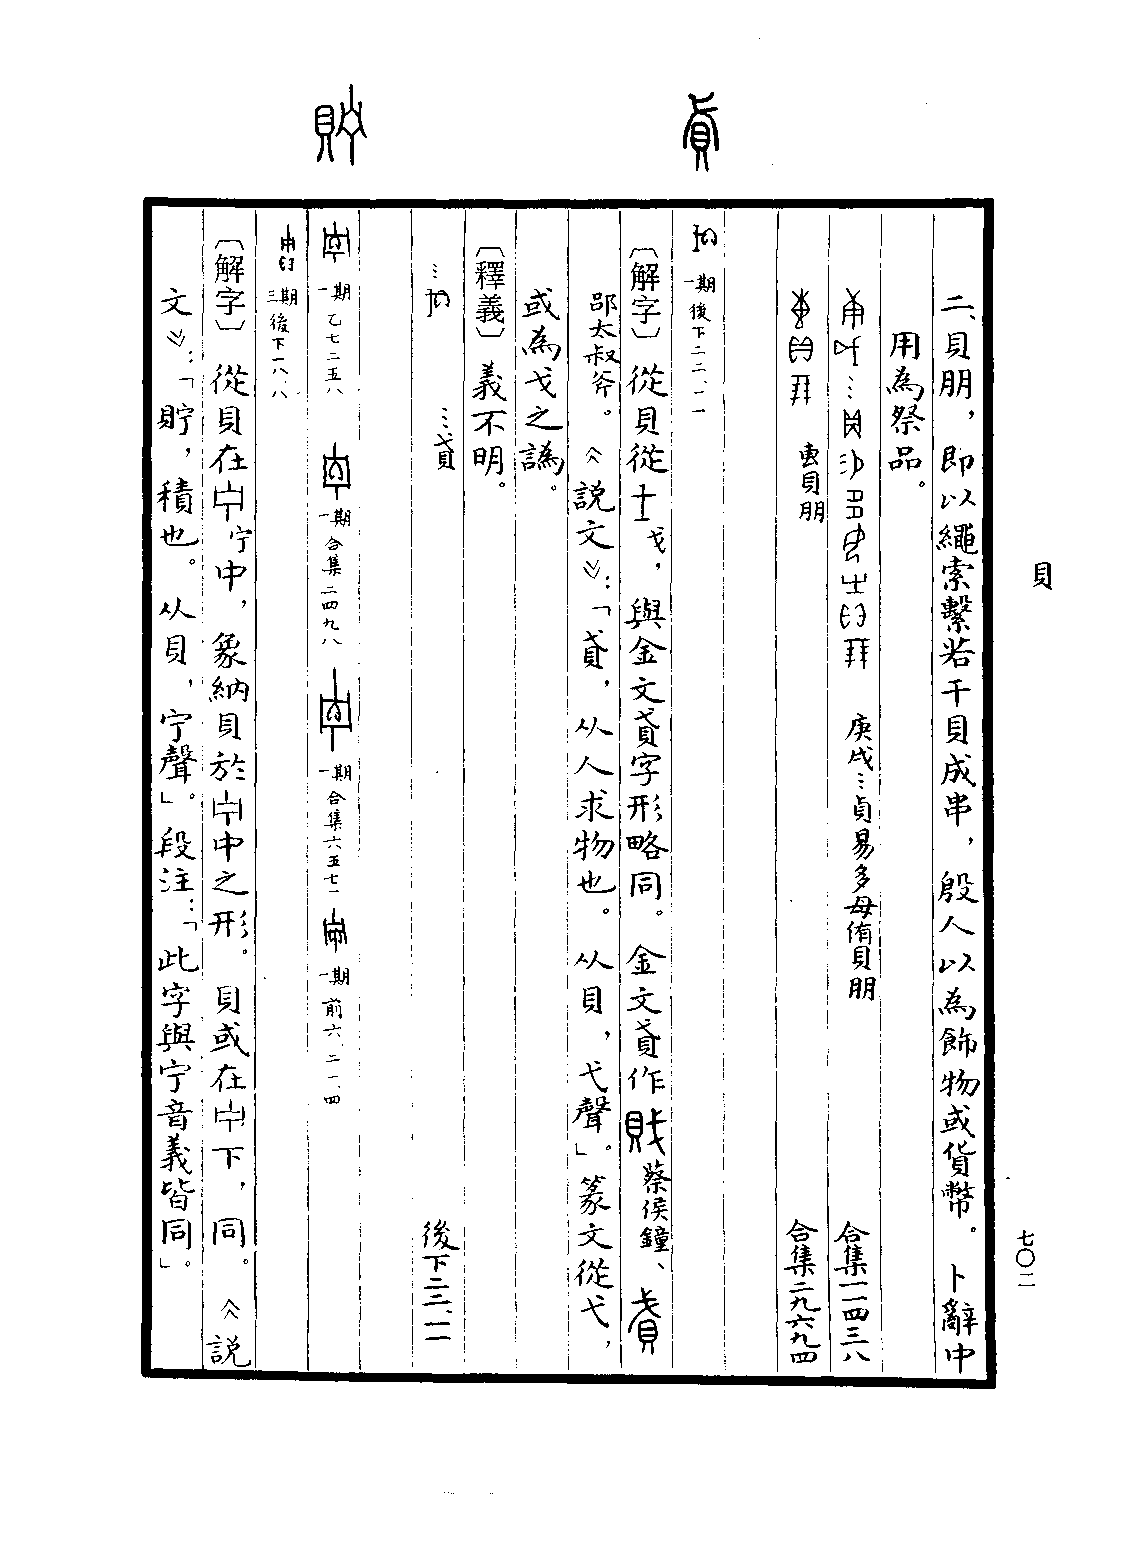 貝
七〇二
二、貝朋，即以繩索繫若干貝成串，殷人以為飾物或貨幣。卜辭中
用為祭品。
庚戌…貞易多母侑貝朋 合集一一四三八
叀貝朋 合集二九六九四
一期後下二二、一一
〔解字〕從貝從戈，與金文貣字形略同。金文貣作蔡侯鐘、
邵太叔斧。《說文》：「貣，从人求物也。从貝，弋聲」。篆文從弋，
或為戈之譌。
〔釋義〕義不明。
……貣 後下二二、一一
一期乙七二五八 一期合集二四九八 一期合集六五七一 一期前六、二一、四
三期後下一八、八
〔解字〕從貝在宁中，象納貝於中之形。貝或在下，同。《說
文》：「貯，積也。从貝，宁聲」。段注：「此字與宁音義皆同」。